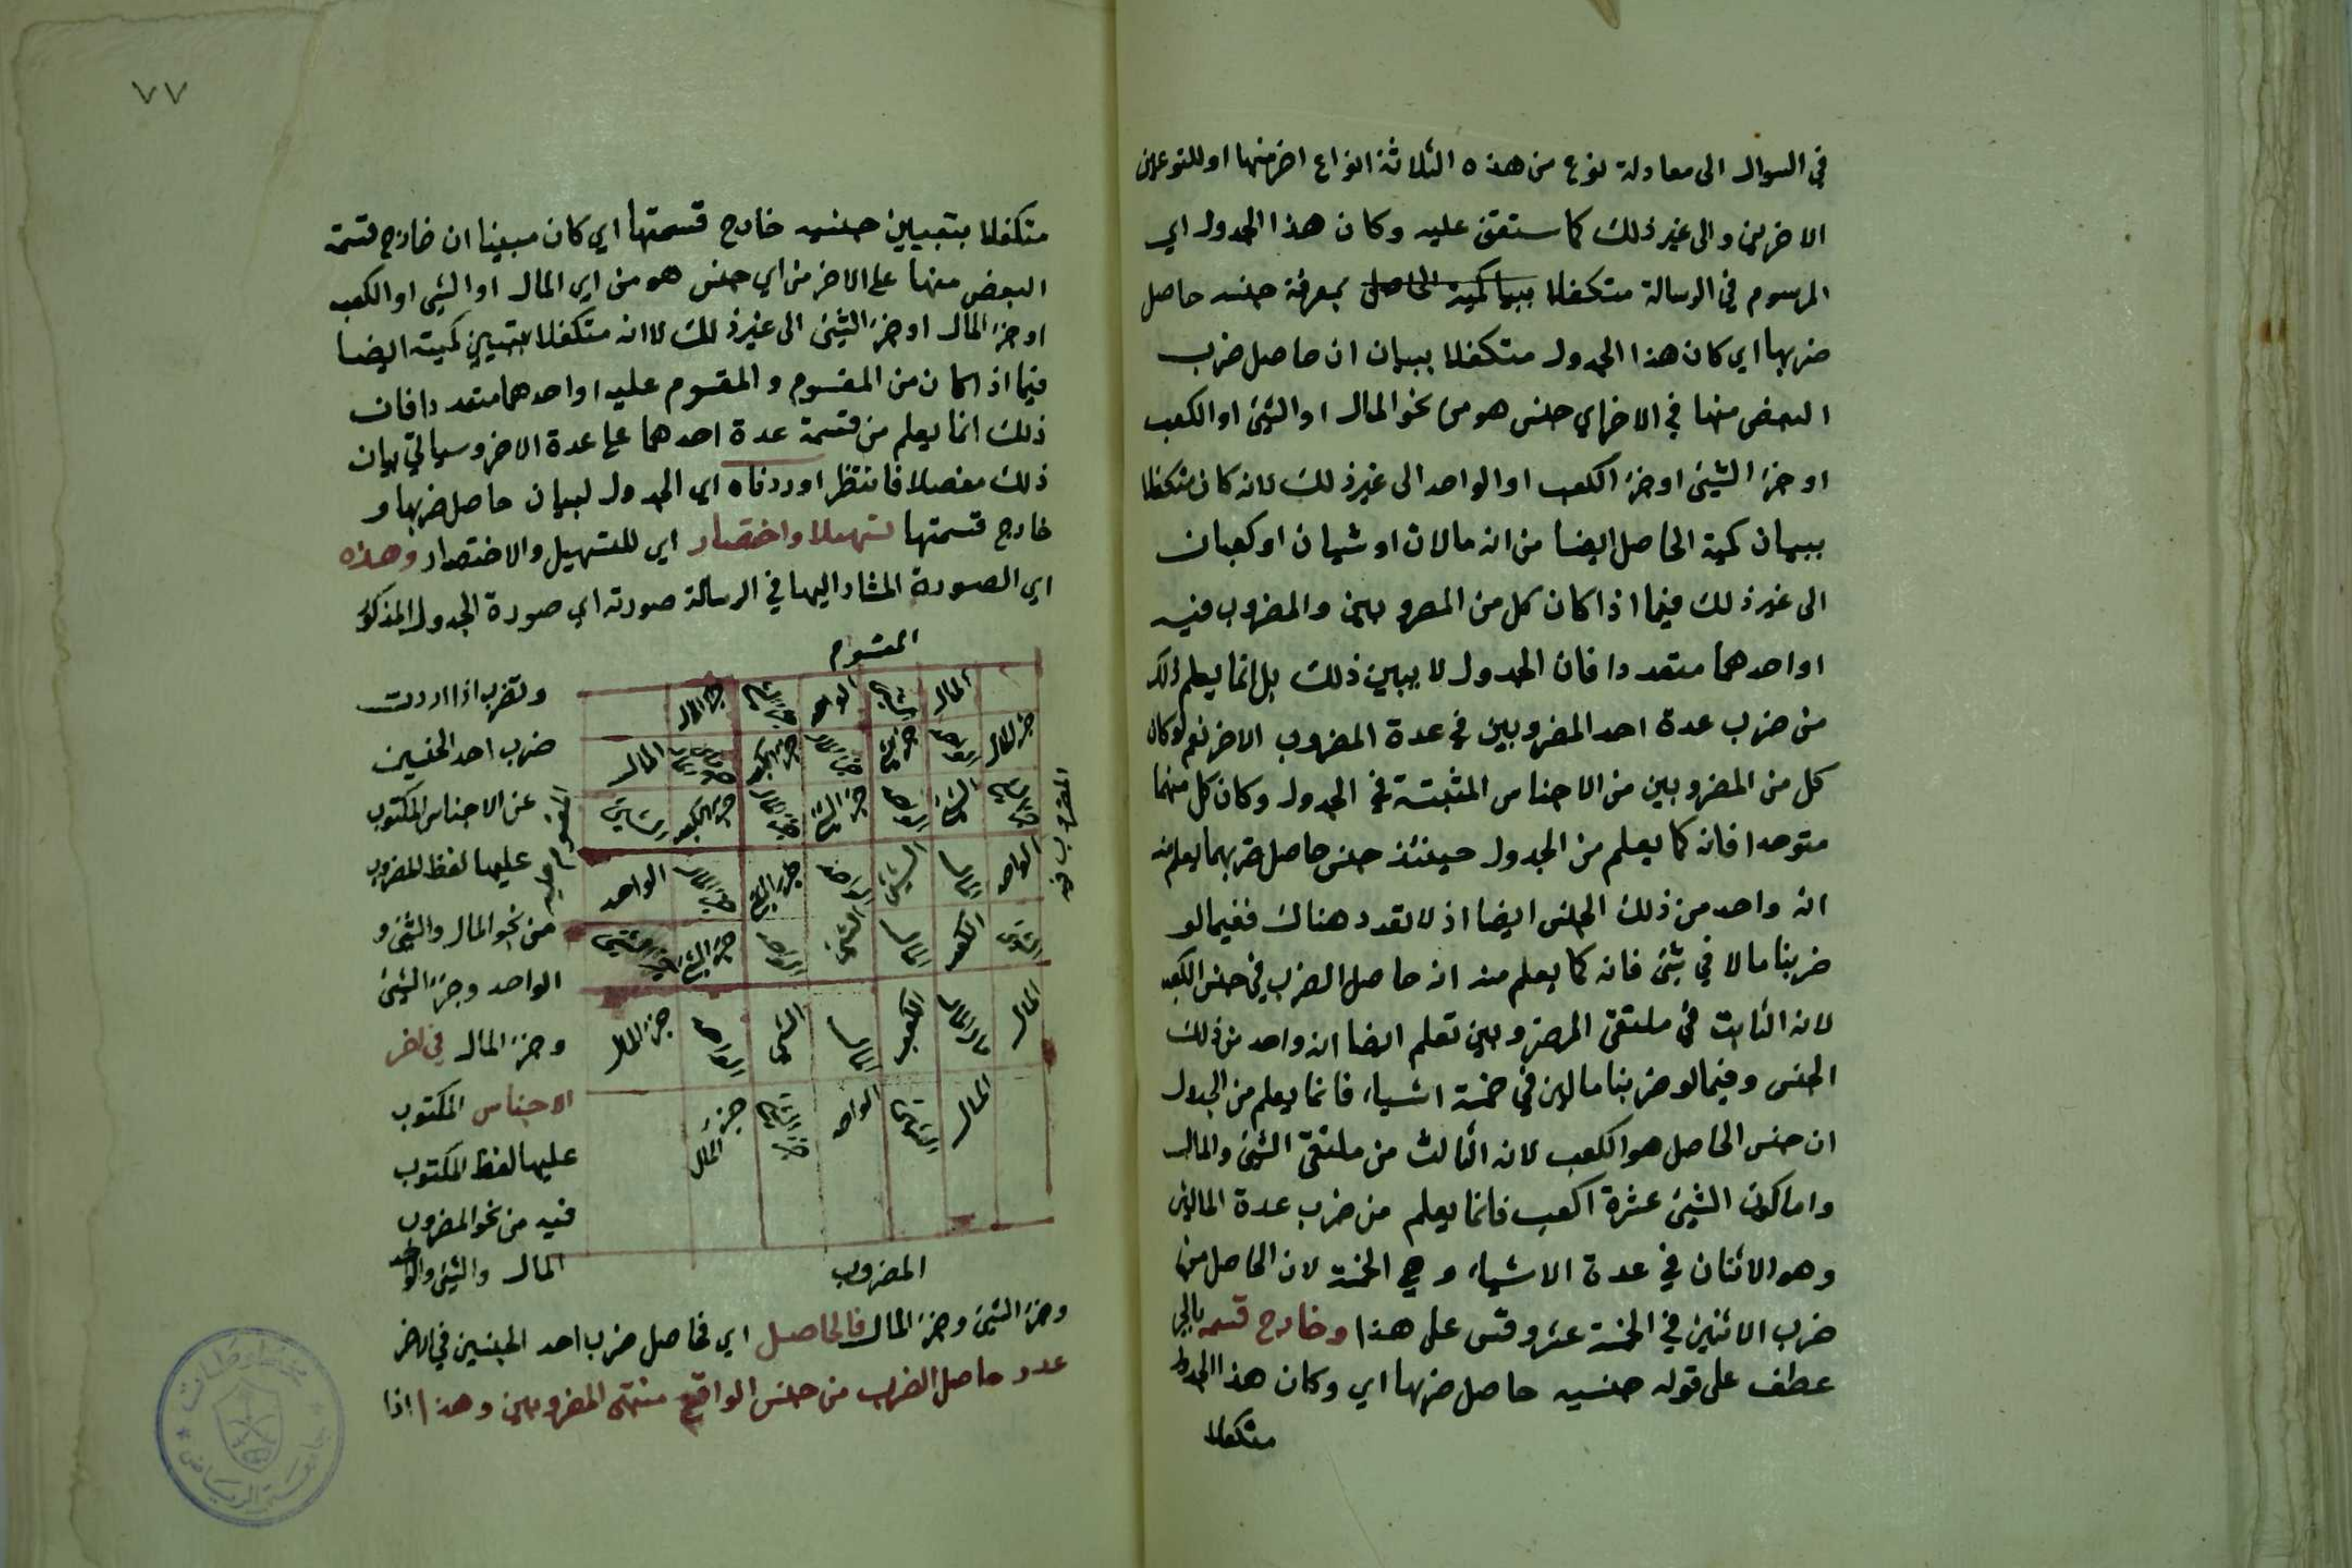 في السوال الى معادلة نوع من هذه الثلاثة انواع اخر منها او للنوعين
الاخرين والى غير ذلك كما ستقف عليه وكان هذا الجدول اي
المرسوم في الرسالة متكفلا بمعرفة جنسه حاصل
ضربها اي كان هذا الجدول متكفلا ببيان ان حاصل ضرب
البعض منها في الاخر اي جنس هو من نحو المال او الشئ او الكعب
او جزء الشئ او جزء الكعب او الواحد الى غير ذلك لانه كان متكفلا
ببيان كمية الحاصل ايضا من انه مالان او شيان او كعبان
الى غير ذلك فيما اذا كان كل من المضروبين والمضروب فيه
او احدهما متعددا فان الجدول لا يبين ذلك بل انما يعلم ذلك
من ضرب عدة احد المضروبين في عدة المضروب الاخر نعم لو كان
كل من المضروبين من الاجناس المثبتة في الجدول وكان كل منهما
متوحدا فانه كما يعلم من الجدول حينئذ جنس حاصل ضربهما يعلم منه
انه واحد من ذلك الجنس ايضا اذ لا تعدد هناك ففيما لو
ضربنا مالا في شئ فانه كما يعلم منه ان حاصل الضرب في جنس الكعب
لانه الثابت في ملتقى المضروبين تعلم ايضا انه واحد من ذلك
الجنس وفيما لو ضربنا مالين في خمسة اشياء فانما يعلم من الجدول
ان جنس الحاصل هو الكعب لانه الثالث من ملتقى الشئ والمال
واما كون الشئ عشرة اكعب فانما يعلم من ضرب عدة المالين
وهو الاثنان في عدة الاشياء وهي الخمسة لان الحاصل من
ضرب الاثنين في الخمسة عشر وقس على هذا وخارج قسمه
عطف على قوله جنسيه حاصل ضربها اي وكان هذا الجدول
متكفلا
٧٧
متكفلا بتبيين جنسيه خارج قسمتها اي كان مبينا ان خارج قسمة
البعض منها على الاخر من اي جنس هو من اي المال او الشئ او الكعب
او جزء المال او جزء الشئ الى غير ذلك لا انه متكفلا بتبيين كميته ايضا
فيما اذا كان من المقسوم والمقسوم عليه او احدهما متعددا فان
ذلك انما يعلم من قسمة عدة احدهما على عدة الاخر وسياتي بيان
ذلك مفصلا فانتظر اوردناه اي الجدول لبيان حاصل ضربها و
خارج قسمتها تسهيلا واختصار اي للتسهيل والاختصار وهذه
اي الصورة المشار اليها في الرسالة صورته اي صورة الجدول المذكور
المقسوم
المال الشئ الواحد جزء الشئ جزء المال
جزء المال الواحد جزء الشئ جزء المال جزء الكعب جزء مال المال المال
جزء الشئ الشئ الواحد جزء الشئ جزء المال جزء الكعب الشئ
الواحد المال الشئ الواحد جزء الشئ جزء المال الواحد
الشئ الكعب المال الشئ الواحد جزء الشئ جزء الشئ
المال مال المال الكعب المال الشئ الواحد جزء المال
المال الشئ الواحد جزء الشئ جزء المال
المضروب فيه
المقسوم عليه
المضروب
وتضرب اذا اردت
ضرب احد الجنسين
عن الاجناس المكتوب
عليها لفظ المضروب
من نحو المال والشئ و
الواحد وجزء الشئ
وجزء المال في اخر
الاجناس المكتوب
عليها لفظ المكتوب
فيه من نحو المضروب
المال والشئ والواحد
وجزء الشئ وجزء المال فالحاصل اي فحاصل ضرب احد الجنسين في الاخر
عدد حاصل الضرب من جنس الواقع منتهى المضروبين وهذا اذا